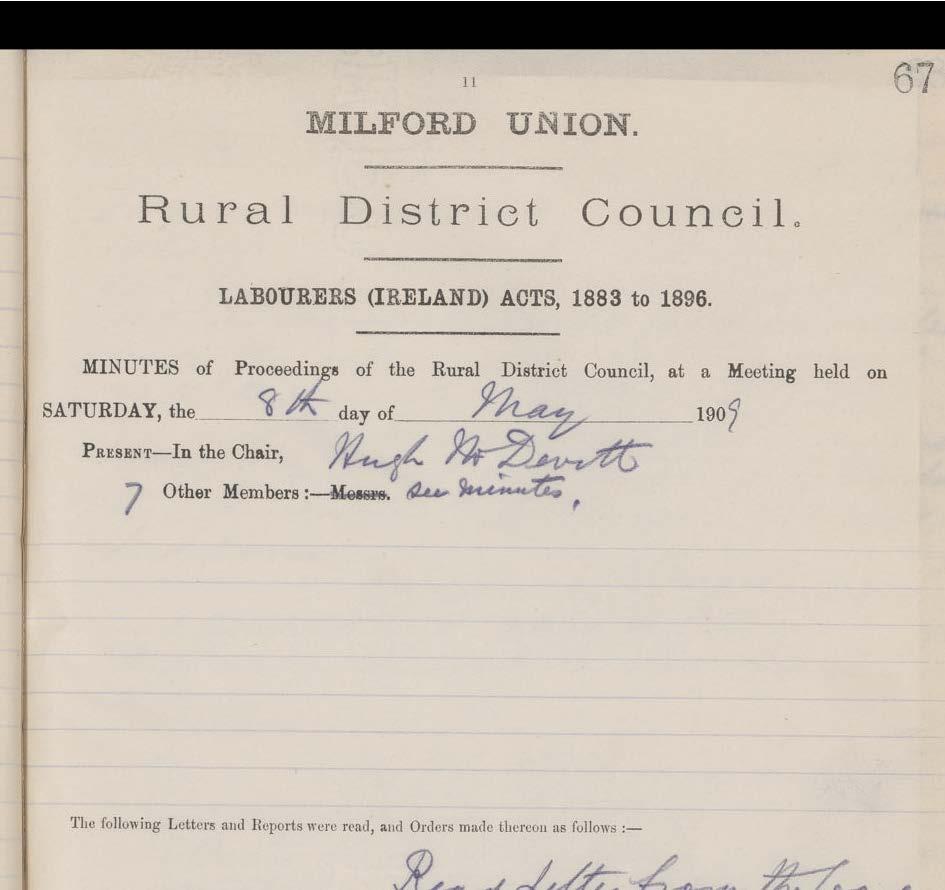 11
67
MILFORD UNION.
Rural District Council.
LABOURERS (IRELAND) ACTS, 1883 to 1896.
MINUTES of Proceedings of the Rural District Council, at a Meeting held on
SATURDAY, the 8th day of May 1909
PRESENT—In the Chair, Hugh McDevitt
7 Other Members:—Messrs. see minutes.
The following Letters and Reports were read, and Orders made thereon as follows:—
Read letter from the